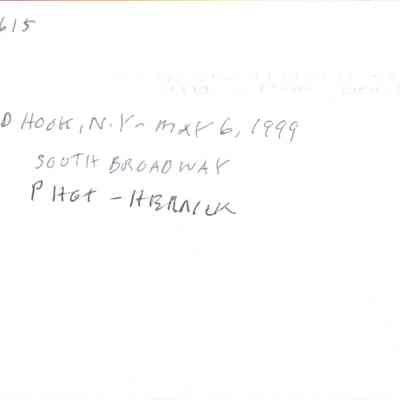 615
D HOOK, N.Y - MAY 6, 1999
SOUTH BROADWAY
PHOT - HERRICK